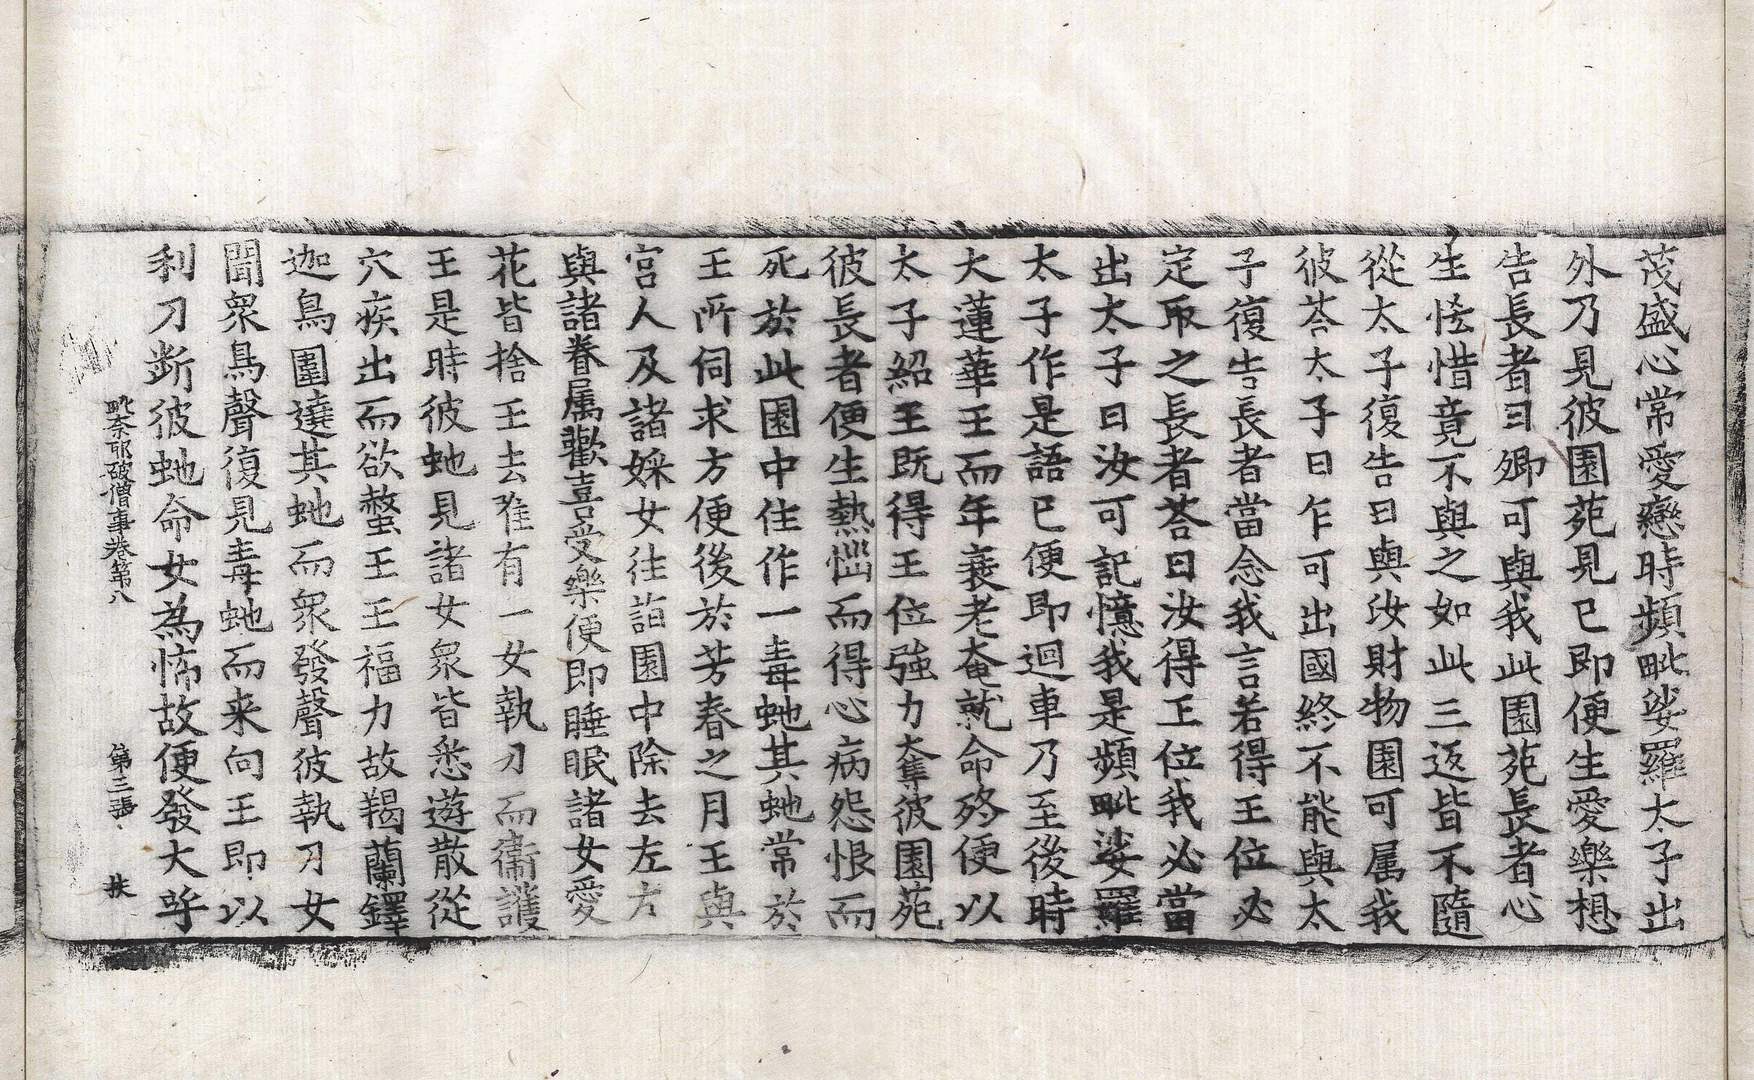 茂盛心常愛戀時頻毗娑羅太子出
外乃見彼園苑見已即便生愛樂想
告長者曰卿可與我此園苑長者心
生恡惜竟不與之如此三返皆不隨
從太子復告曰與汝財物園可属我
彼荅太子曰乍可出國終不能與太
子復告長者當念我言若得王位必
定取之長者荅曰汝得王位我必當
出太子曰汝可記憶我是頻毗娑羅
太子作是語已便即迴車乃至後時
大蓮華王而年衰老奄就命終便以
太子紹王既得王位強力奪彼園苑
彼長者便生熱惱而得心病怨恨而
死於此園中住作一毒虵其虵常於
王所伺求方便後於芳春之月王與
宮人及諸婇女往詣園中除去左右
與諸眷属歡喜受樂便即睡眠諸女愛
花皆捨王去唯有一女執刀而衞護
王是時彼虵見諸女衆皆悉遊散從
穴疾出而欲螫王王福力故羯蘭鐸
迦鳥圍遶其虵而衆發聲彼執刀女
聞衆鳥聲復見毒虵而来向王即以
利刀斫彼虵命女為怖故便發大呼
毗奈耶破僧事卷第八 第三張 扶